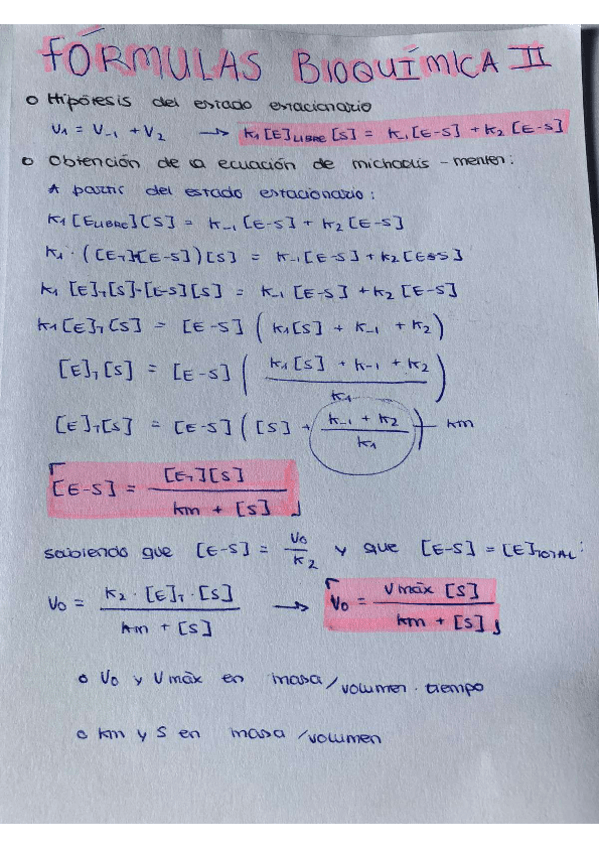 FÓRMULAS BIOQUÍMICA II
o Hipótesis del estado estacionario
V1 = V-1 + V2 → K1[E]LIBRE[S] = K-1[E-S] + K2[E-S]
o Obtención de la ecuación de michaelis-menten:
A partir del estado estacionario:
K1[ELIBRE][S] = K-1[E-S] + K2[E-S]
K1·([ET]-[E-S])[S] = K-1[E-S] + K2[E-S]
K1[E]T[S]-[E-S][S] = K-1[E-S] + K2[E-S]
K1[E]T[S] = [E-S] (K1[S] + K-1 + K2)
[E]T[S] = [E-S] (K1[S] + K-1 + K2 / K1)
[E]T[S] = [E-S] ([S] + K-1 + K2 / K1) — Km
[E-S] = [ET][S] / Km + [S]
sabiendo que [E-S] = V0 / K2 y que [E-S] = [E]TOTAL:
V0 = K2·[E]T·[S] / Km + [S] → V0 = Vmáx [S] / Km + [S]
o V0 y Vmáx en masa/volumen·tiempo
o Km y S en masa/volumen